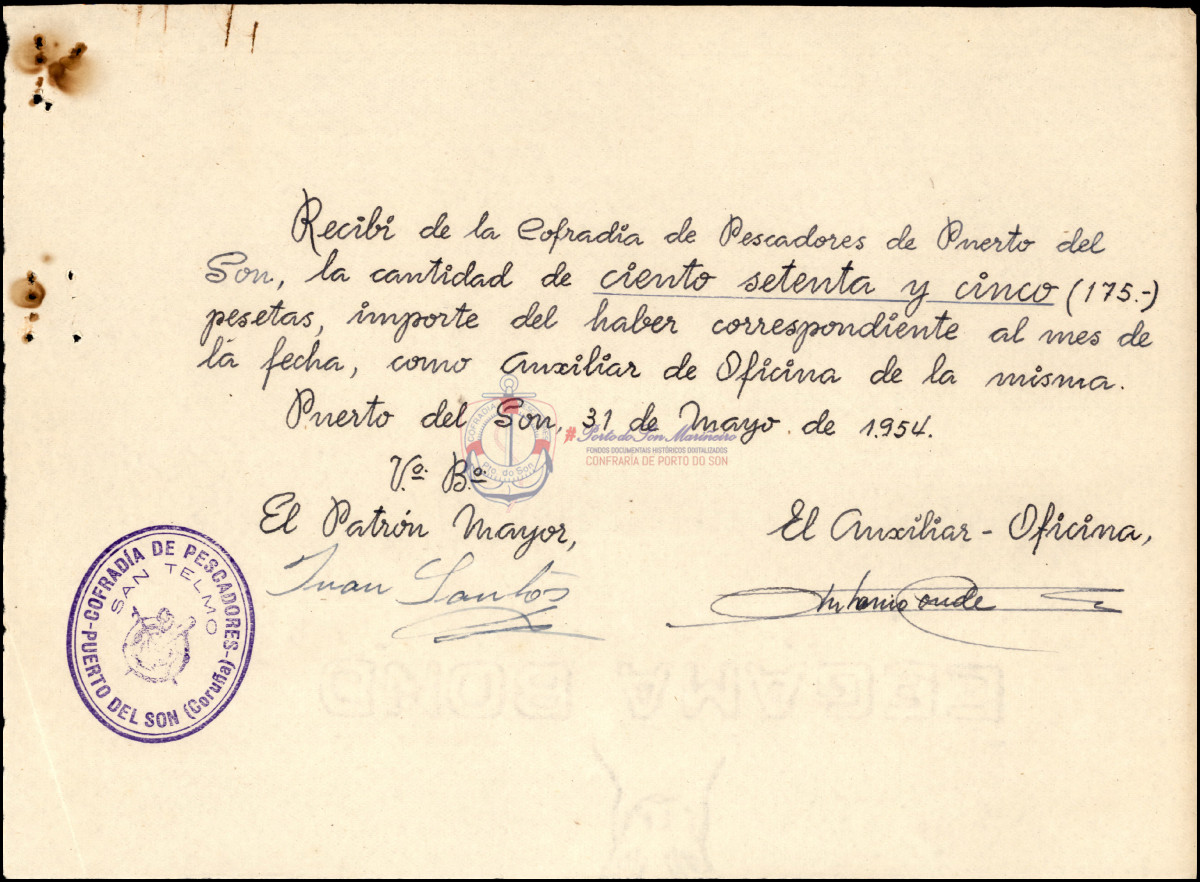 Recibí de la Cofradía de Pescadores de Puerto del
Son, la cantidad de ciento setenta y cinco (175.-)
pesetas, importe del haber correspondiente al mes de
la fecha, como Auxiliar de Oficina de la misma.
Puerto del Son, 31 de Mayo de 1.954.
COFRADIA
Pto. do Son
#Porto do Son Mariñeiro
FONDOS DOCUMENTAIS HISTÓRICOS DIXITALIZADOS
CONFRARÍA DE PORTO DO SON
V.º B.º
El Patrón Mayor,
El Auxiliar - Oficina,
Juan Santos
Antonio Conde
COFRADÍA DE PESCADORES
SAN TELMO
PUERTO DEL SON (Coruña)